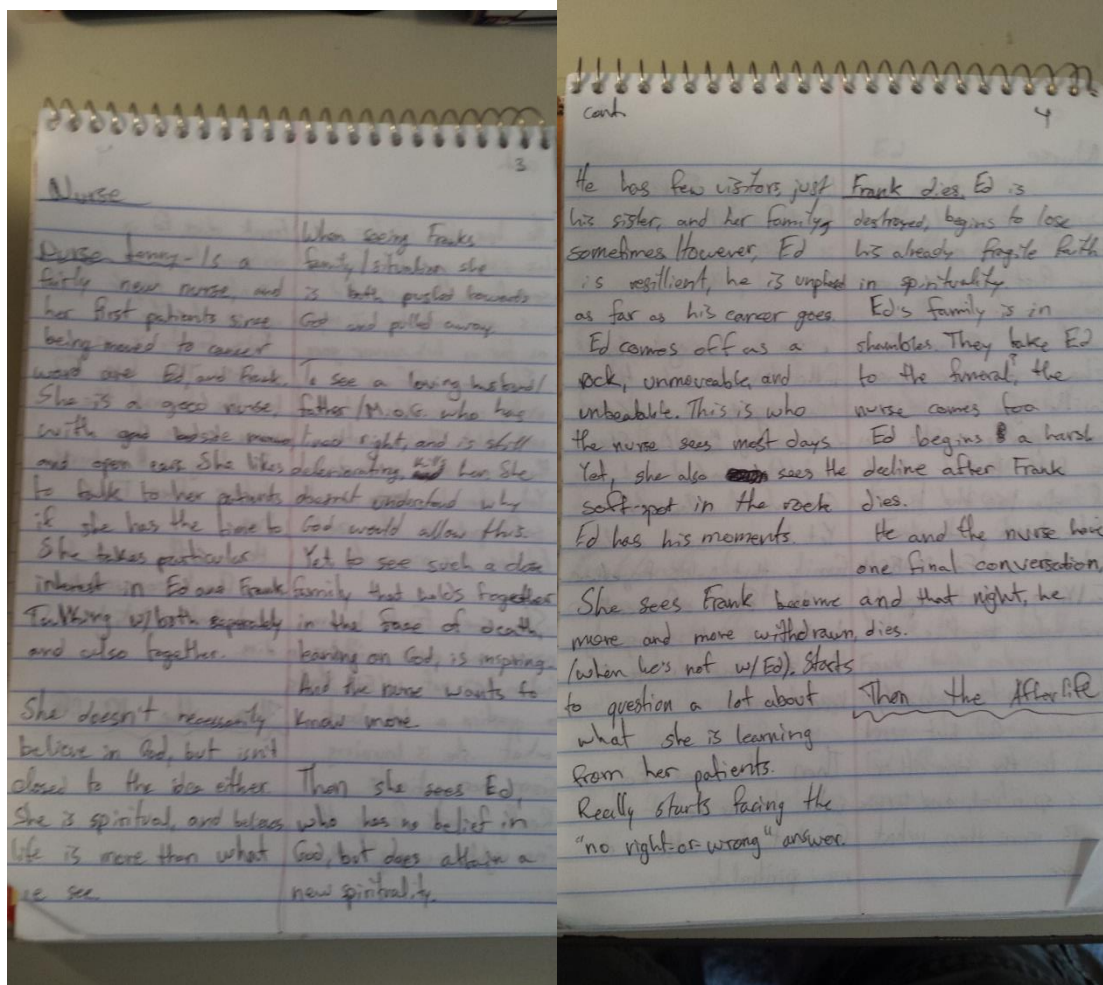 3
Nurse
Nurse Jenny - Is a
fairly new nurse, and
her first patients since
being moved to cancer
ward are Ed, and Frank.
She is a good nurse,
with good bedside
and open ears. She likes
to talk to her patients
if she has the time to
She takes particular
interest in Ed and Frank
Talking w/both seperately
and also together.
She doesn't necessarily
believe in God, but isn't
closed to the idea either.
She is spiritual, and
life is more than what
we see.
When seeing Franks
family/situation she
is both pushed towards
God and pulled away.
To see a loving husband/
father/M.o.G. who has
lived right, and is still
deteriorating, kills her. She
doesn't understand why
God would allow this.
Yet to see such a close
family, that holds together
in the face of death,
leaning on God, is inspiring.
And the nurse wants to
know more.
Then she sees Ed,
who has no belief in
God, but does attain a
new spirituality.
cont. 4
He has few vistors, just
his sister, and her family,
sometimes However, Ed
is resillient, he is
as far as his career goes.
Ed comes off as a
rock, unmoveable, and
unbeatable. This is who
the nurse sees most days
Yet, she also sees the
soft-spot in the rock
Ed has his moments.
She sees Frank become
more and more withdrawn,
(when he's not w/Ed). Starts
to question a lot about
what she is learning
from her patients.
Really starts facing the
"no right-or-wrong" answer.
Frank dies. Ed is
destroyed, begins to lose
his already fragile faith
in spirituality
Ed's family is in
shambles. They take Ed
to the funeral? the
nurse comes too
Ed begins a harsh
decline after Frank
dies.
He and the nurse have
one final conversation,
and that night, he
dies.
Then the Afterlife